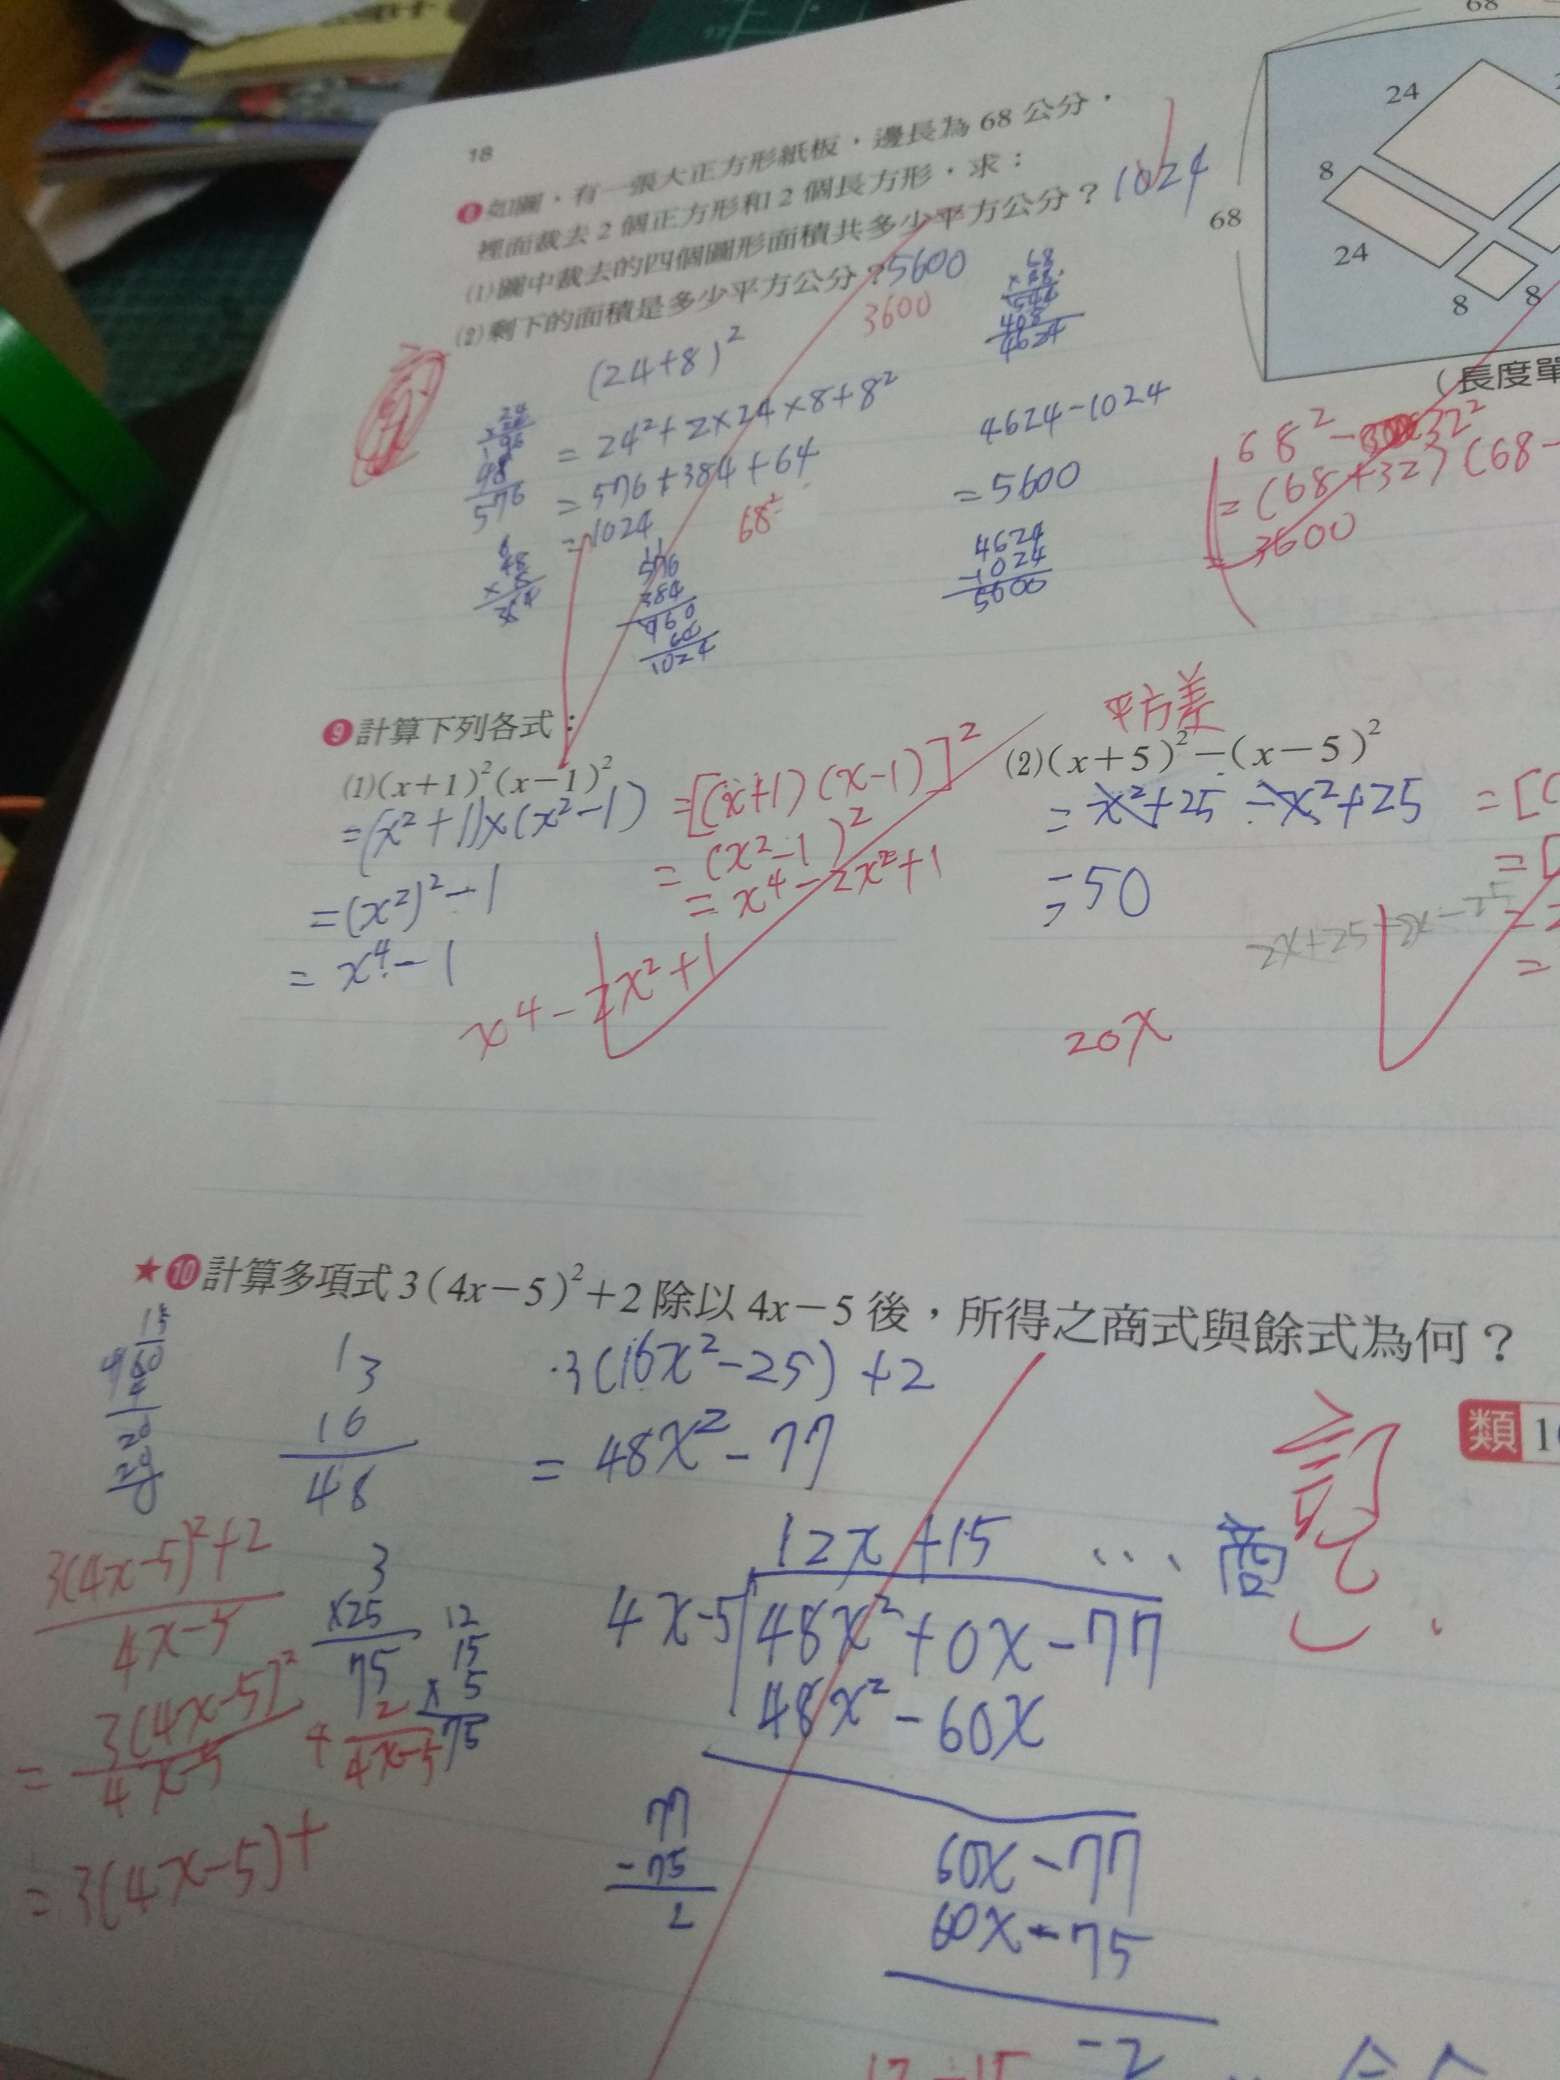 18
68
❽如圖，有一張大正方形紙板，邊長為 68 公分，
裡面裁去 2 個正方形和 2 個長方形，求：
(1)圖中裁去的四個圖形面積共多少平方公分？ 1024
(2)剩下的面積是多少平方公分？5600
3600
24
8
68
24
8
8
(長度單
(24+8)²
= 24²+2×24×8+8²
= 576+384+64
= 1024
68²-
68
4624
4624-1024
= 5600
4624
-1024
5600
68²-32²
= (68+32)(68-
= 3600
48
576
576
384
960
1024
❾計算下列各式：
(1)(x+1)²(x-1)²
=(x²+1)×(x²-1)
=(x²)²-1
= x⁴-1
=[(x+1)(x-1)]²
= (x²-1)²
= x⁴-2x²+1
x⁴-2x²+1
平方差
(2)(x+5)²-(x-5)²
= x²+25-x²+25
= 50
= [(
= [
2x+25-2x-25
=
20x
★❿計算多項式 3(4x-5)²+2 除以 4x-5 後，所得之商式與餘式為何？
3(16x²-25)+2
= 48x²-77
13
16
48
類 1
訂
12x+15 … 商
4x-5
48x²+0x-77
48x²-60x
60x-77
60x-75
-2
3(4x-5)²+2
4x-5
= 3(4x-5)²
4x-5
+ 2
4x-5
= 3(4x-5)+
3
×25
75
12
15
× 5
75
77
-75
2